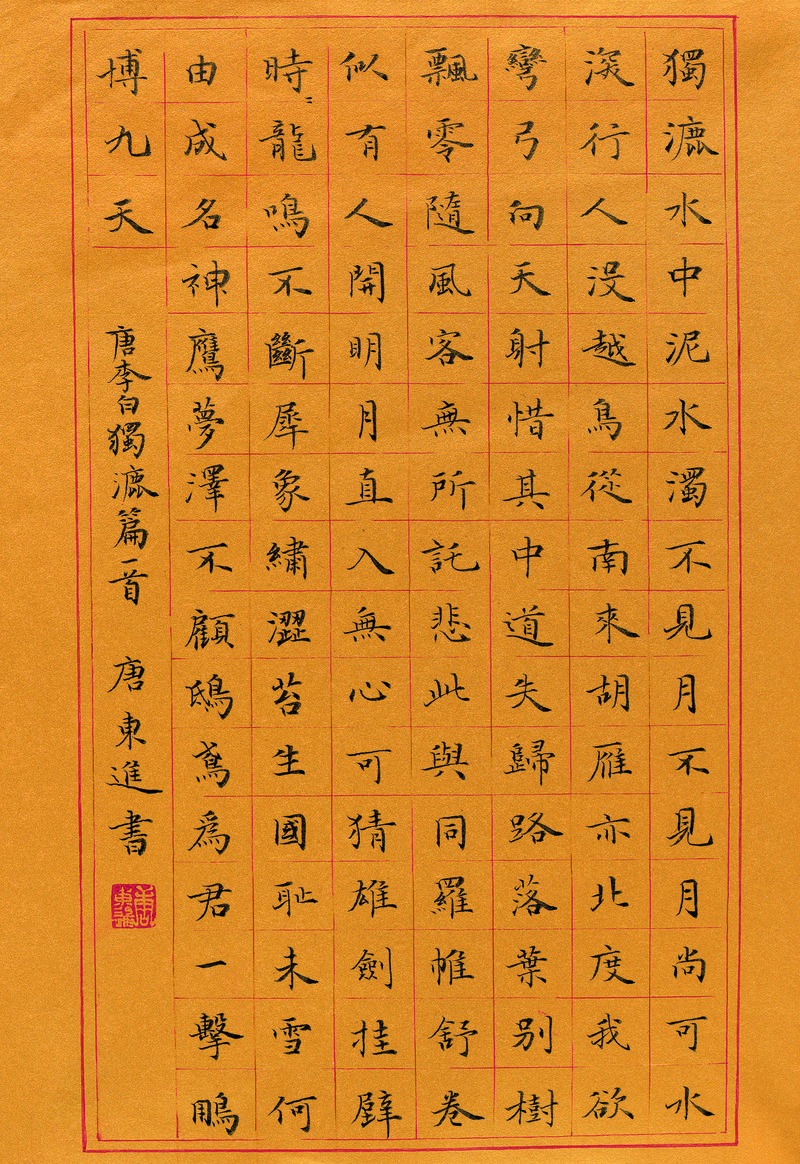 獨漉水中泥水濁不見月不見月尚可水
深行人没越鳥從南來胡雁亦北度我欲
彎弓向天射惜其中道失歸路落葉别樹
飄零隨風客無所託悲此與同羅帷舒卷
似有人開明月直入無心可猜雄劍挂壁
時〻龍鳴不斷犀象繡澀苔生國恥未雪何
由成名神鷹夢澤不顧鴟鳶爲君一擊鵰
博九天
唐李白獨漉篇一首 唐東進書